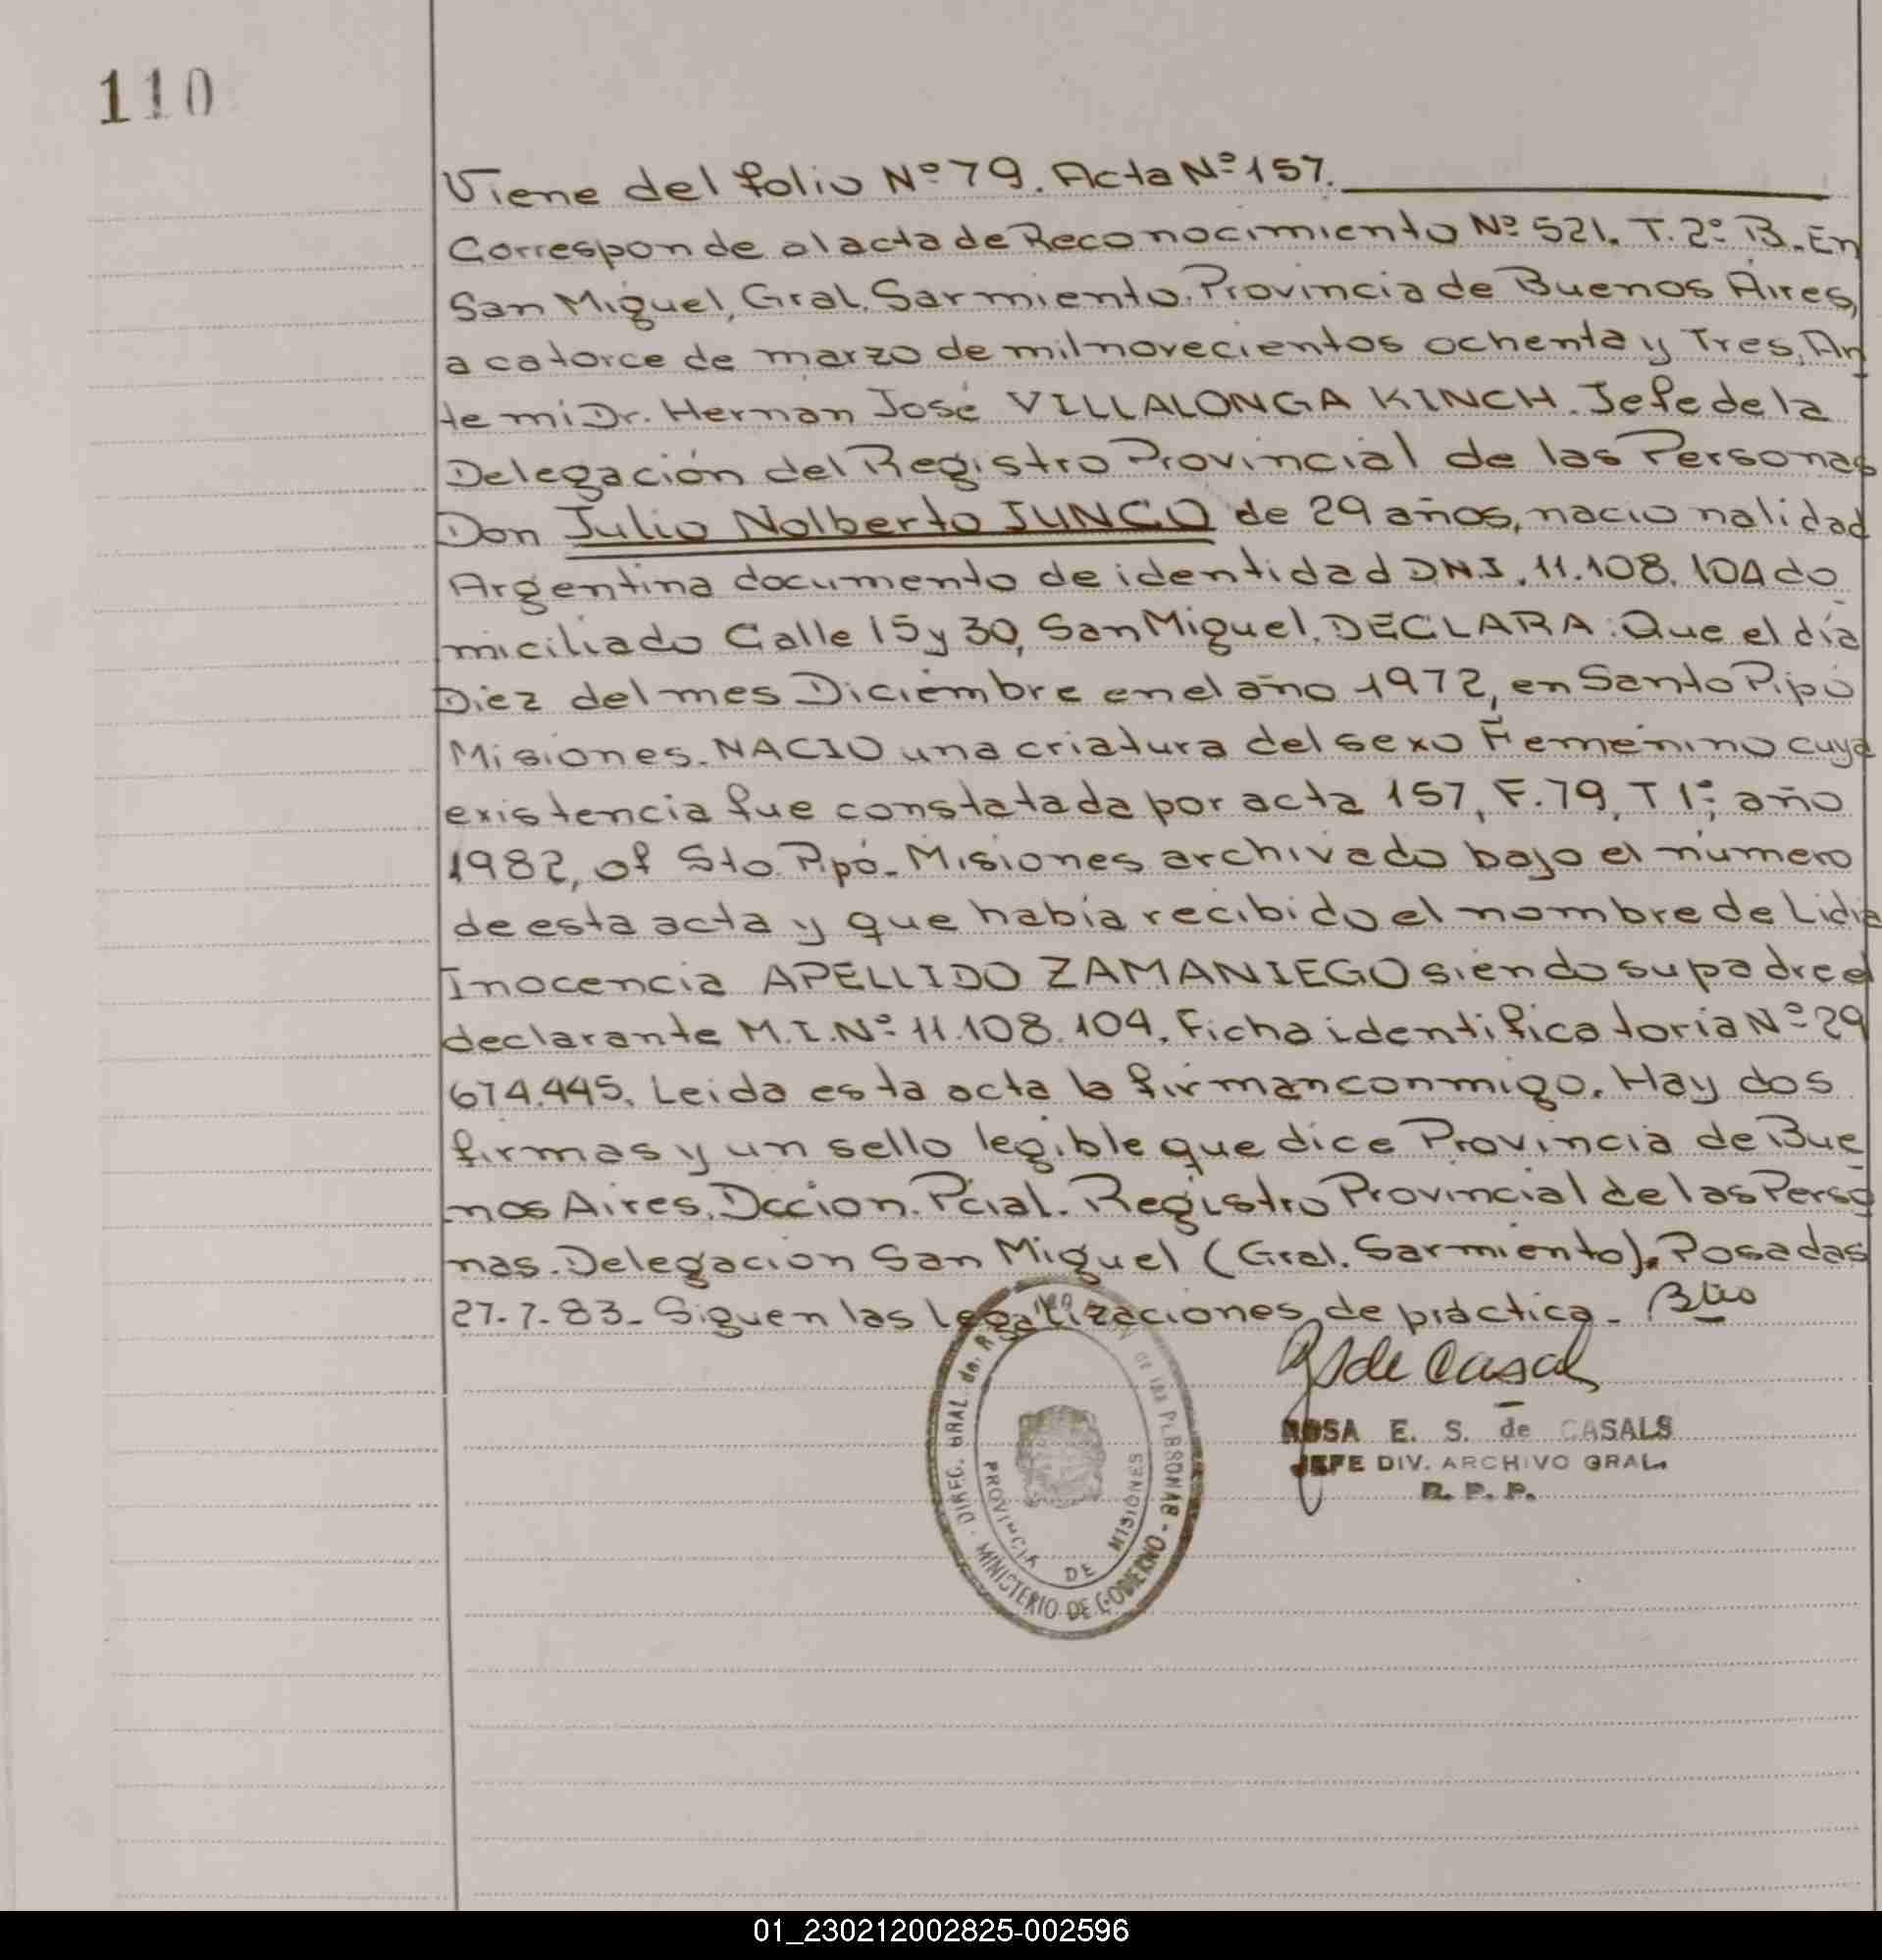 110
Viene del folio Nº 79. Acta Nº 157.
Corresponde al acta de Reconocimiento Nº 521. T. 2º B. En
San Miguel, Gral. Sarmiento. Provincia de Buenos Aires,
a catorce de marzo de mil novecientos ochenta y Tres, An
te mi Dr. Hernan José VILLALONGA KINCH. Jefe de la
Delegación del Registro Provincial de las Personas
Don Julio Nolberto JUNCO de 29 años, nacionalidad
Argentina documento de identidad DNI. 11.108.104 do
miciliado Calle 15 y 30, San Miguel. DECLARA: Que el día
Diez del mes Diciembre en el año 1972, en Santo Pipó
Misiones. NACIO una criatura del sexo Femenino cuya
existencia fue constatada por acta 157, F. 79, T 1º; año
1982, of Sto. Pipó. Misiones archivado bajo el número
de esta acta y que había recibido el nombre de Lidia
Inocencia APELLIDO ZAMANIEGO siendo su padre el
declarante M.I. Nº 11.108.104. Ficha identificatoria Nº 29
674.445. Leida esta acta la firman conmigo. Hay dos
firmas y un sello legible que dice Provincia de Bue
nos Aires. Dccion. Pcial. Registro Provincial de las Perso
nas. Delegacion San Miguel (Gral. Sarmiento). Posadas
27-7-83- Siguen las legalizaciones de práctica-
de Casals
ROSA E. S. de CASALS
JEFE DIV. ARCHIVO GRAL.
R. P. P.
DIREC. GRAL. de. DE LAS PERSONAS
MINISTERIO DE GOBIERNO
PROVINCIA DE MISIONES
01_230212002825-002596